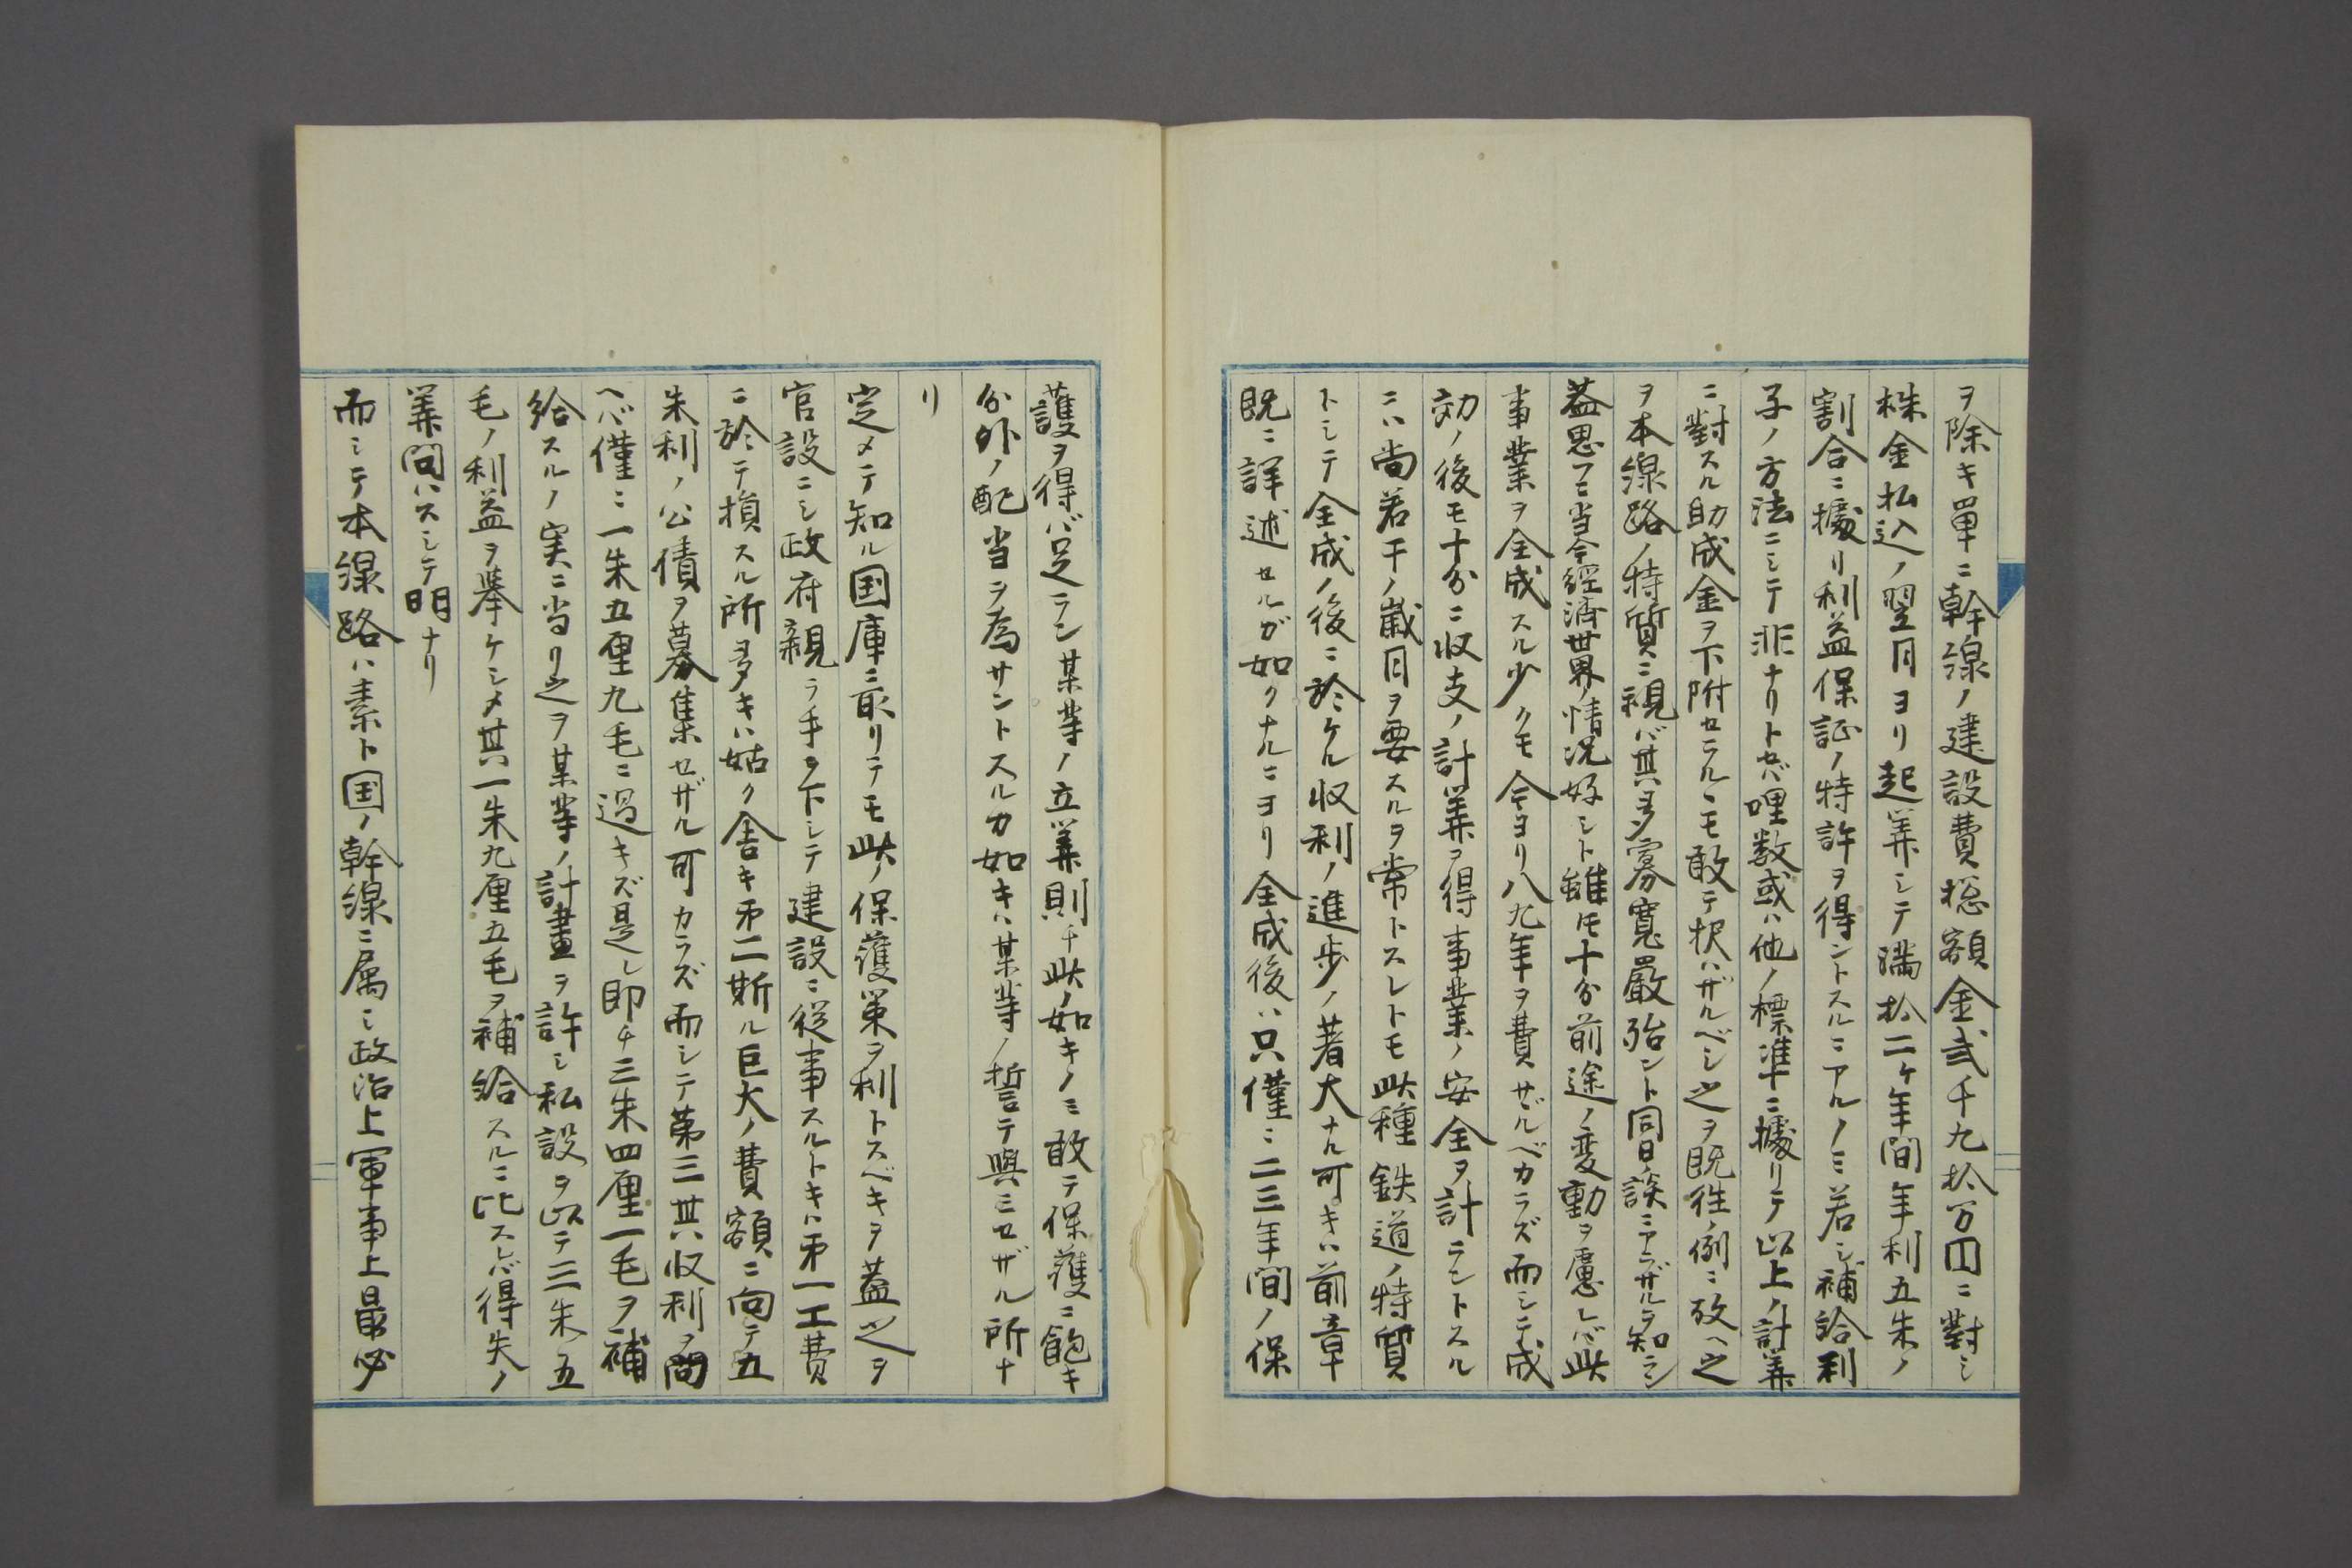 ヲ除キ單ニ幹線ノ建設費総額金弐千九拾万円ニ對シ
株金払込ノ翌月ヨリ起算シテ満拾二ケ年間年利五朱ノ
割合ニ據リ利益保証ノ特許ヲ得ントスルニアルノミ若シ補給利
子ノ方法ニシテ非ナリトセバ哩数或ハ他ノ標準ニ據リテ以上ノ計算
ニ對スル助成金ヲ下附セラルヽモ敢テ択ハザルベシ之ヲ既往ノ例ニ攷ヘ之
ヲ本線路ノ特質ニ視バ其多寡寛嚴殆ント同日談ニアラザルヲ知ラン
蓋思フニ当今經済世界ノ情況好シト雖モ十分前途ノ変動ヲ慮レバ此
事業ヲ全成スル少クモ今ヨリ八九年ヲ費サヾルベカラズ而シテ成
効ノ後モ十分ニ収支ノ計算ヲ得事業ノ安全ヲ計ラントスル
ニハ尚若干ノ歳月ヲ要スルヲ常トスレトモ此種鉄道ノ特質
トシテ全成ノ後ニ於ケル収利ノ進歩ノ著大ナル可キハ前章
既ニ詳述セルガ如クナルニヨリ全成後ハ只僅ニ二三年間ノ保
護ヲ得バ足ラン某等ノ立算則チ此ノ如キノミ敢テ保護ニ飽キ
分外ノ配当ヲ為サントスルカ如キハ某等ノ誓テ與ミセザル所ナ
リ
定メテ知ル国庫ニ取リテモ此ノ保護策ヲ利トスベキヲ蓋之ヲ
官設ニシ政府親ラ手ヲ下シテ建設ニ従事スルトキハ第一工費
ニ於テ損スル所多キハ姑ク舎キ第二斯ル巨大ノ費額ニ向テ五
朱利ノ公債ヲ募集セザル可カラズ而シテ第三其収利ヲ問
ヘバ僅ニ一朱五厘九毛ニ過キズ是レ即チ三朱四厘一毛ヲ補
給スルノ実ニ当リ之ヲ某等ノ計畫ヲ許シ私設ヲ以テ三朱五
毛ノ利益ヲ挙ケシメ其一朱九厘五毛ヲ補給スルニ比スレバ得失ノ
算問ハスシテ明ナリ
而シテ本線路ハ素ト国ノ幹線ニ属シ政治上軍事上最必